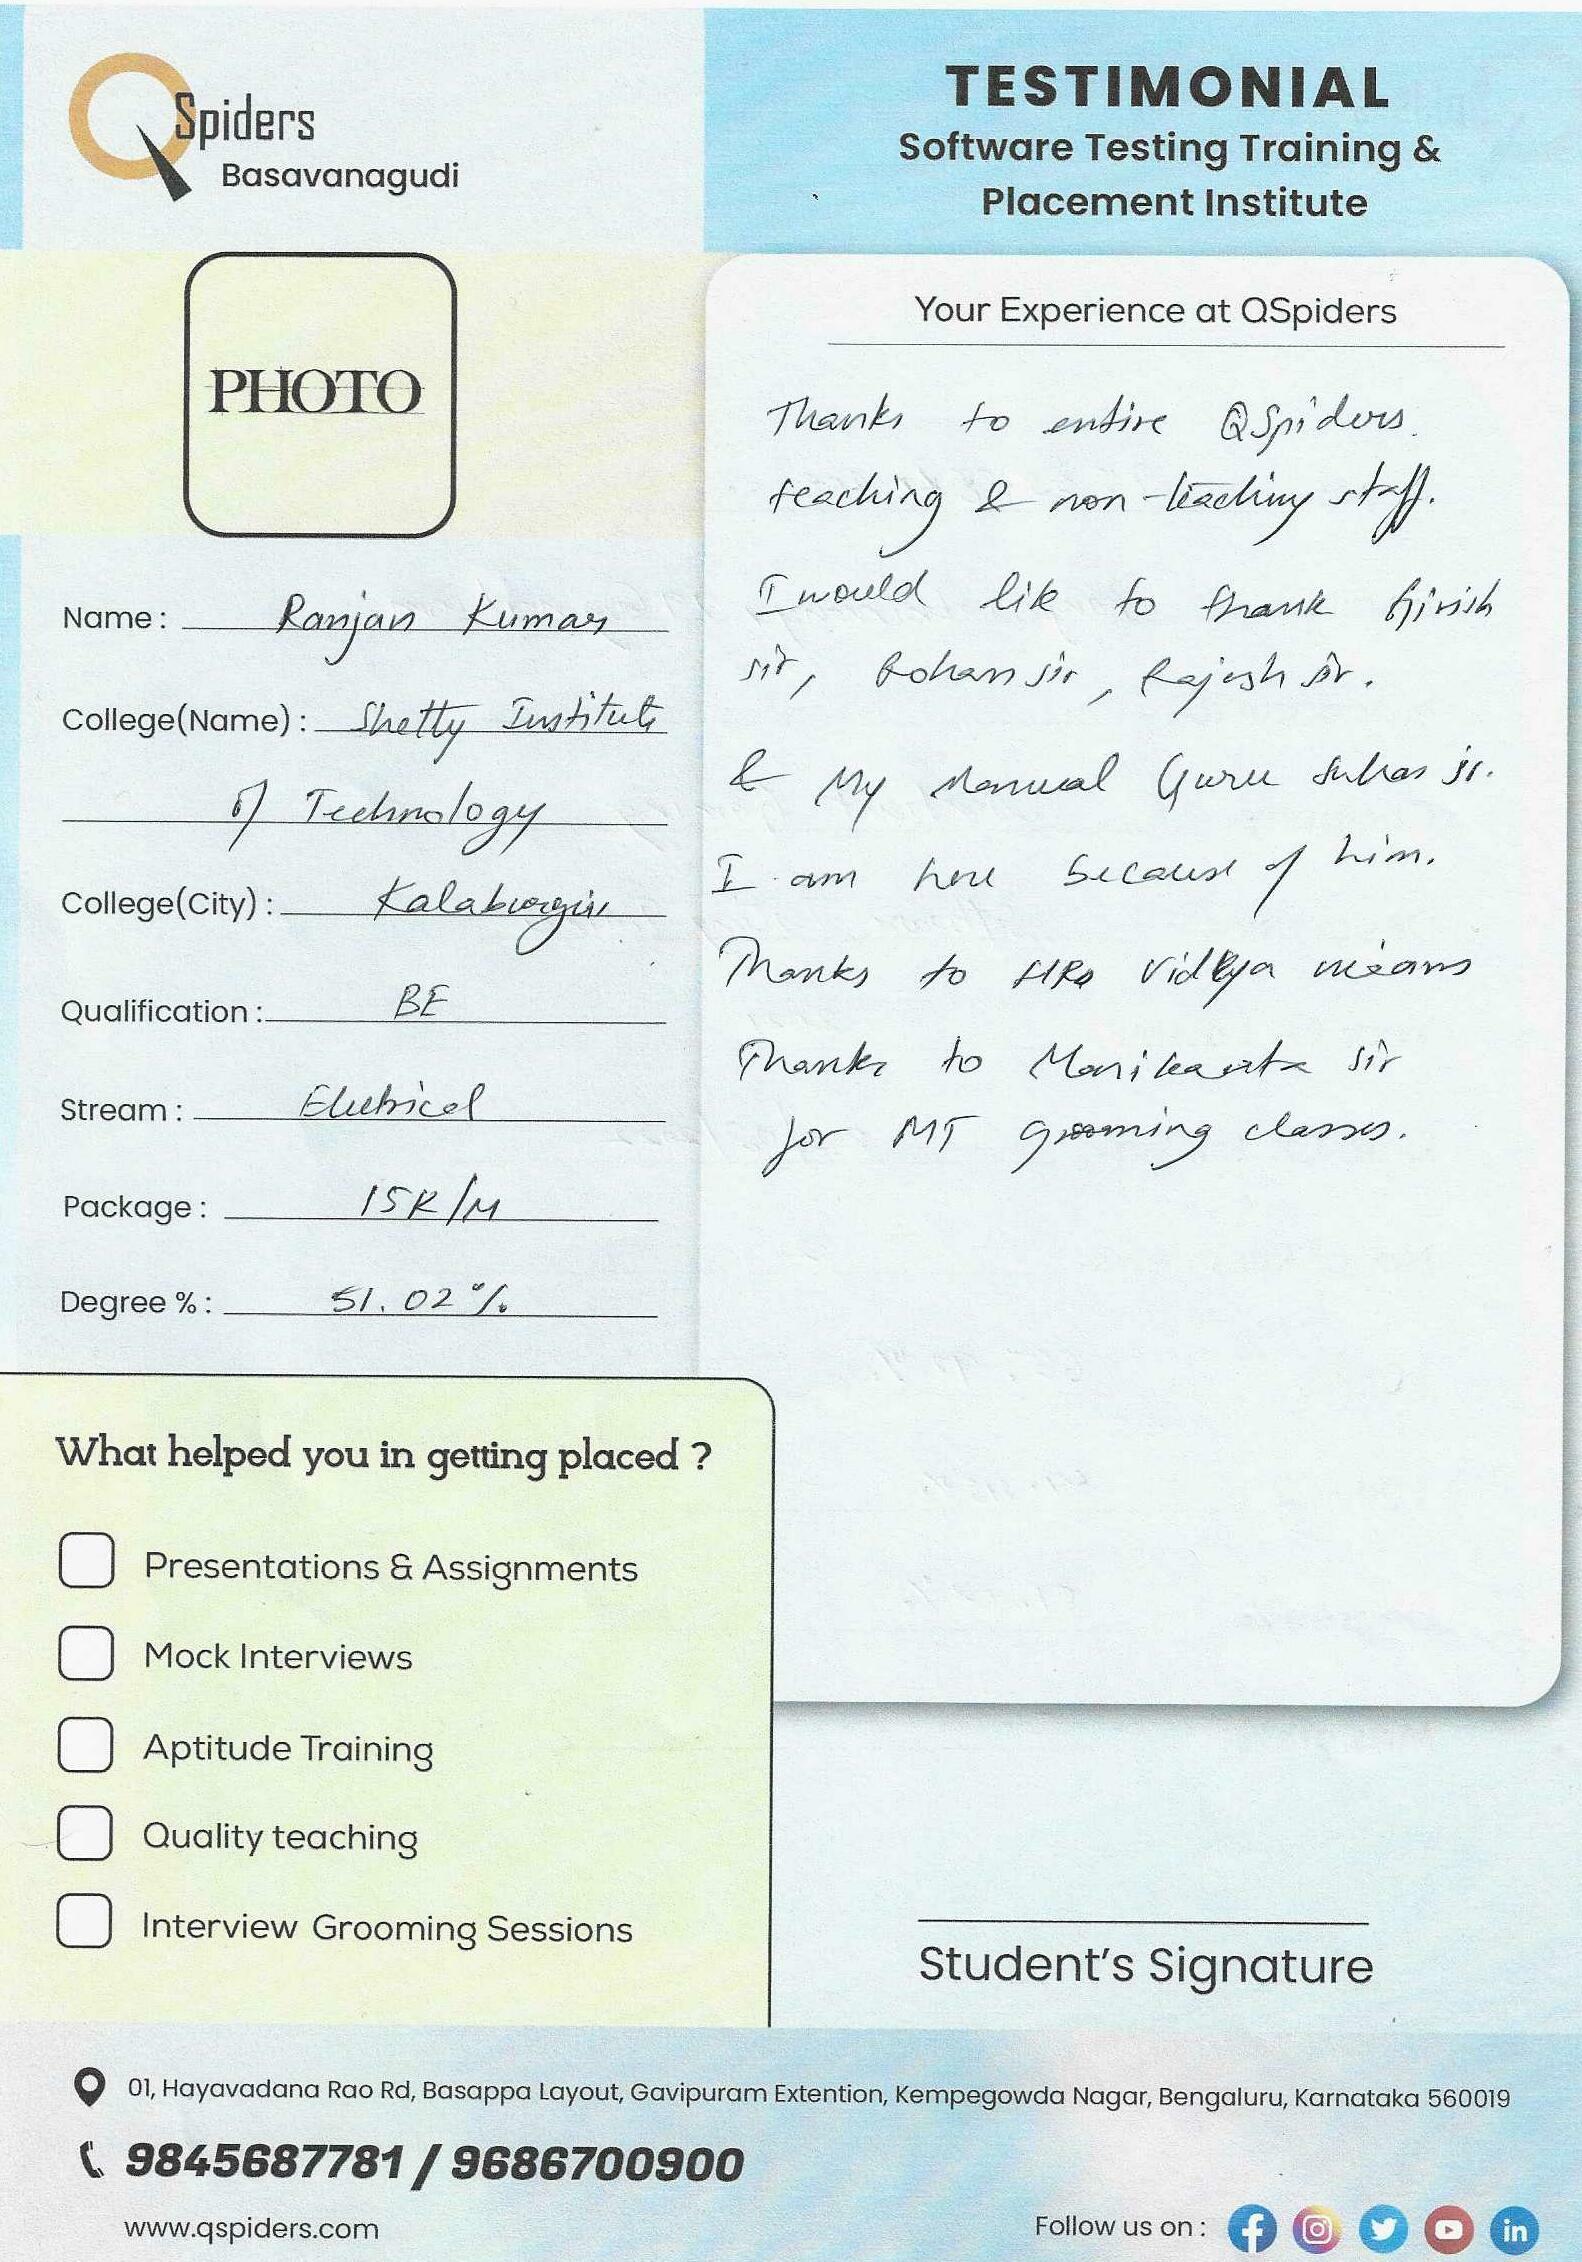 QSpiders
Basavanagudi
TESTIMONIAL
Software Testing Training &
Placement Institute
PHOTO
Your Experience at QSpiders
Thanks to entire QSpiders.
teaching & non-teaching staff.
I would like to thank Girish
sir, Rohan sir, Rajesh sir.
& My Manual Guru Suhas sir.
I am here because of him.
Thanks to HRs Vidya
Thanks to Manikanta sir
for MT grooming classes.
Name : Ranjan Kumar
College(Name) : Shetty Institute
of Technology
College(City) : Kalaburgi
Qualification : BE
Stream : Electrical
Package : 15K/M
Degree % : 51.02%
What helped you in getting placed ?
Presentations & Assignments
Mock Interviews
Aptitude Training
Quality teaching
Interview Grooming Sessions
Student's Signature
01, Hayavadana Rao Rd, Basappa Layout, Gavipuram Extention, Kempegowda Nagar, Bengaluru, Karnataka 560019
9845687781 / 9686700900
www.qspiders.com
Follow us on :